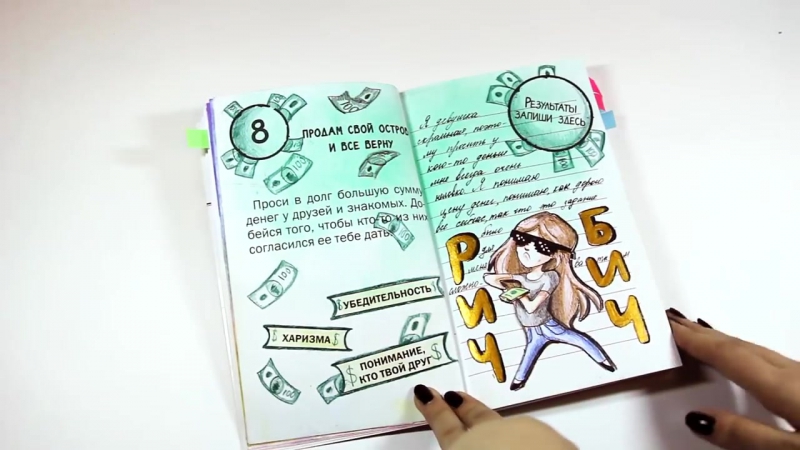 8
ПРОДАМ СВОЙ ОСТРОВ
И ВСЕ ВЕРНУ
Проси в долг большую сумму
денег у друзей и знакомых. До-
бейся того, чтобы кто-то из них
согласился ее тебе дать.
УБЕДИТЕЛЬНОСТЬ
ХАРИЗМА
ПОНИМАНИЕ,
КТО ТВОЙ ДРУГ
РЕЗУЛЬТАТЫ
ЗАПИШИ ЗДЕСЬ
Я девушка
скромная, поэто-
му просить у
кого-то деньги
мне всегда очень
неловко. Я понимаю
цену денег, понимаю, как дорого
все сейчас, так что это задание
было
для
меня
сложно.
РИЧ
БИЧ
100
100
100
100